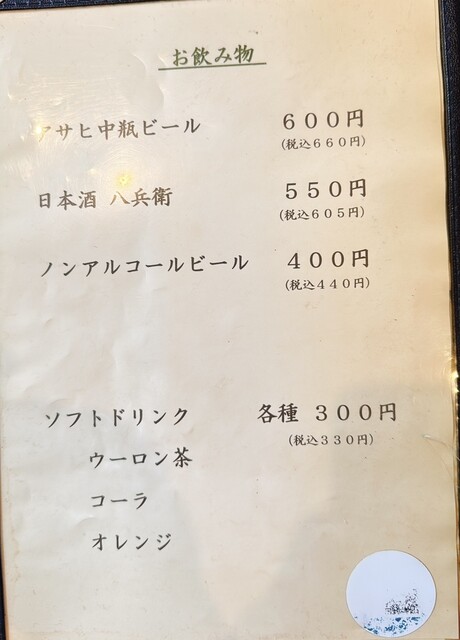 お飲み物
アサヒ中瓶ビール ６００円
(税込６６０円)
日本酒 八兵衛 ５５０円
(税込６０５円)
ノンアルコールビール ４００円
(税込４４０円)
ソフトドリンク 各種 ３００円
(税込３３０円)
ウーロン茶
コーラ
オレンジ